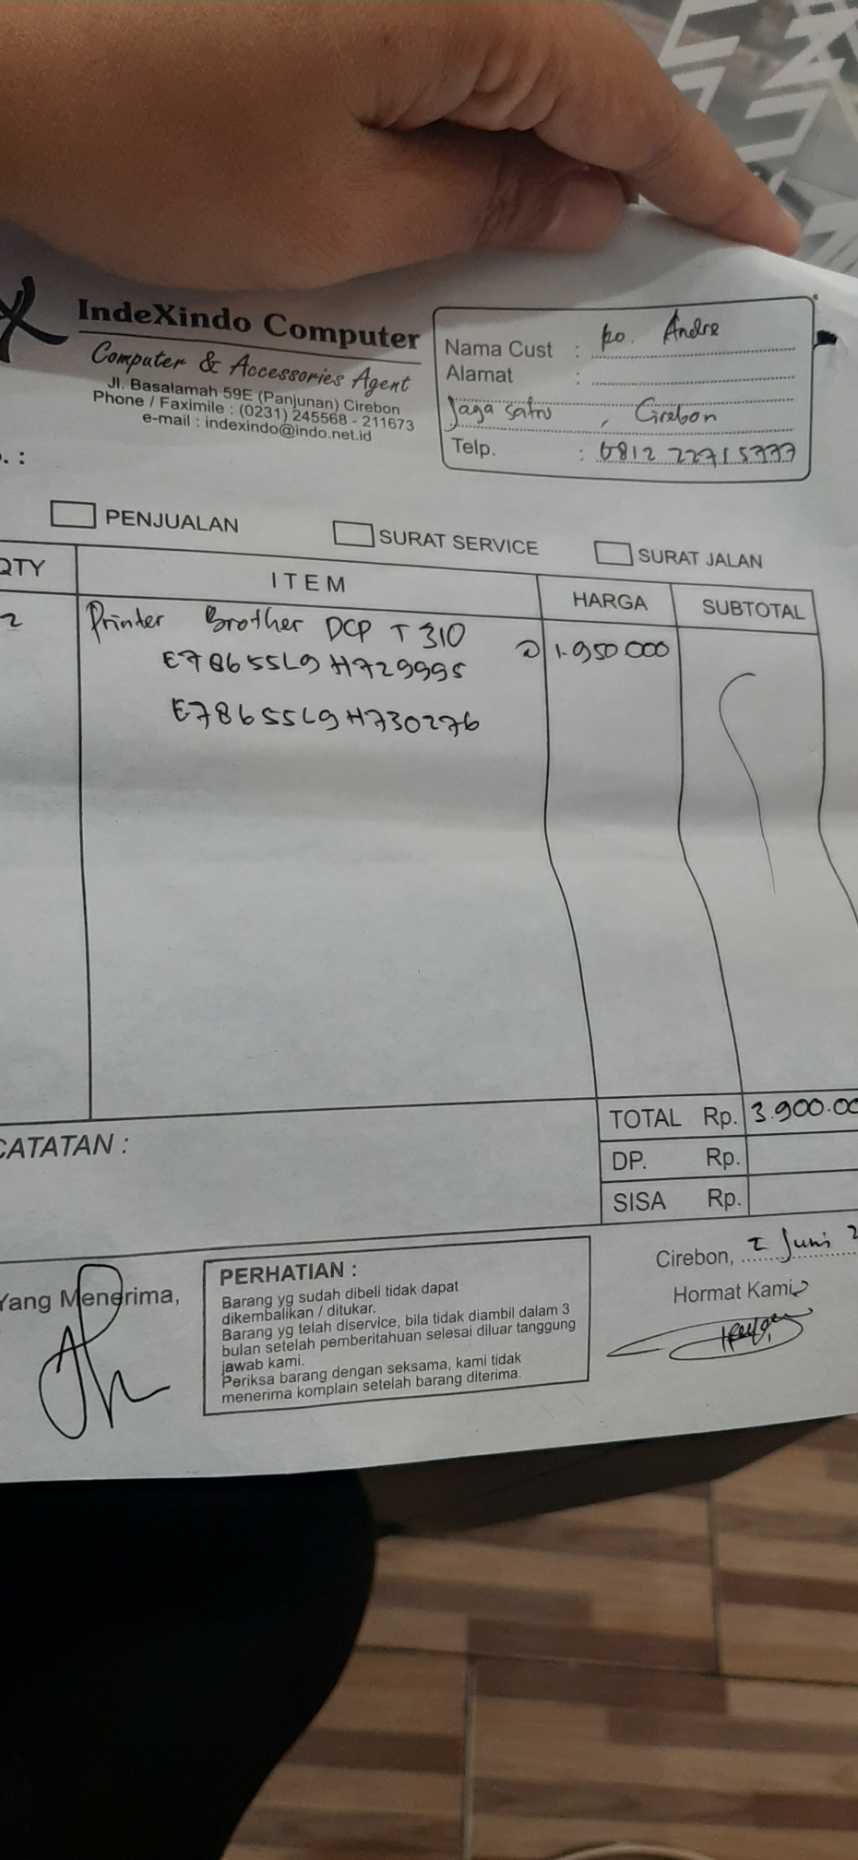 IndeXindo Computer
Computer & Accessories Agent
Jl. Basalamah 59E (Panjunan) Cirebon
Phone / Faximile : (0231) 245568 - 211673
e-mail : indexindo@indo.net.id
Nama Cust : ko. Andre
Alamat :
Jaga satru, Cirebon
Telp. : 0812 22715777
. :
PENJUALAN SURAT SERVICE SURAT JALAN
QTY ITEM HARGA SUBTOTAL
2 Printer Brother DCP T 310 @ 1.950.000
E78655L9H729995
E78655L9H730276
TOTAL Rp. 3.900.00
CATATAN :
DP. Rp.
SISA Rp.
Cirebon, 2 Juni 2
Yang Menerima,
Hormat Kami
PERHATIAN :
Barang yg sudah dibeli tidak dapat
dikembalikan / ditukar.
Barang yg telah diservice, bila tidak diambil dalam 3
bulan setelah pemberitahuan selesai diluar tanggung
jawab kami.
Periksa barang dengan seksama, kami tidak
menerima komplain setelah barang diterima.